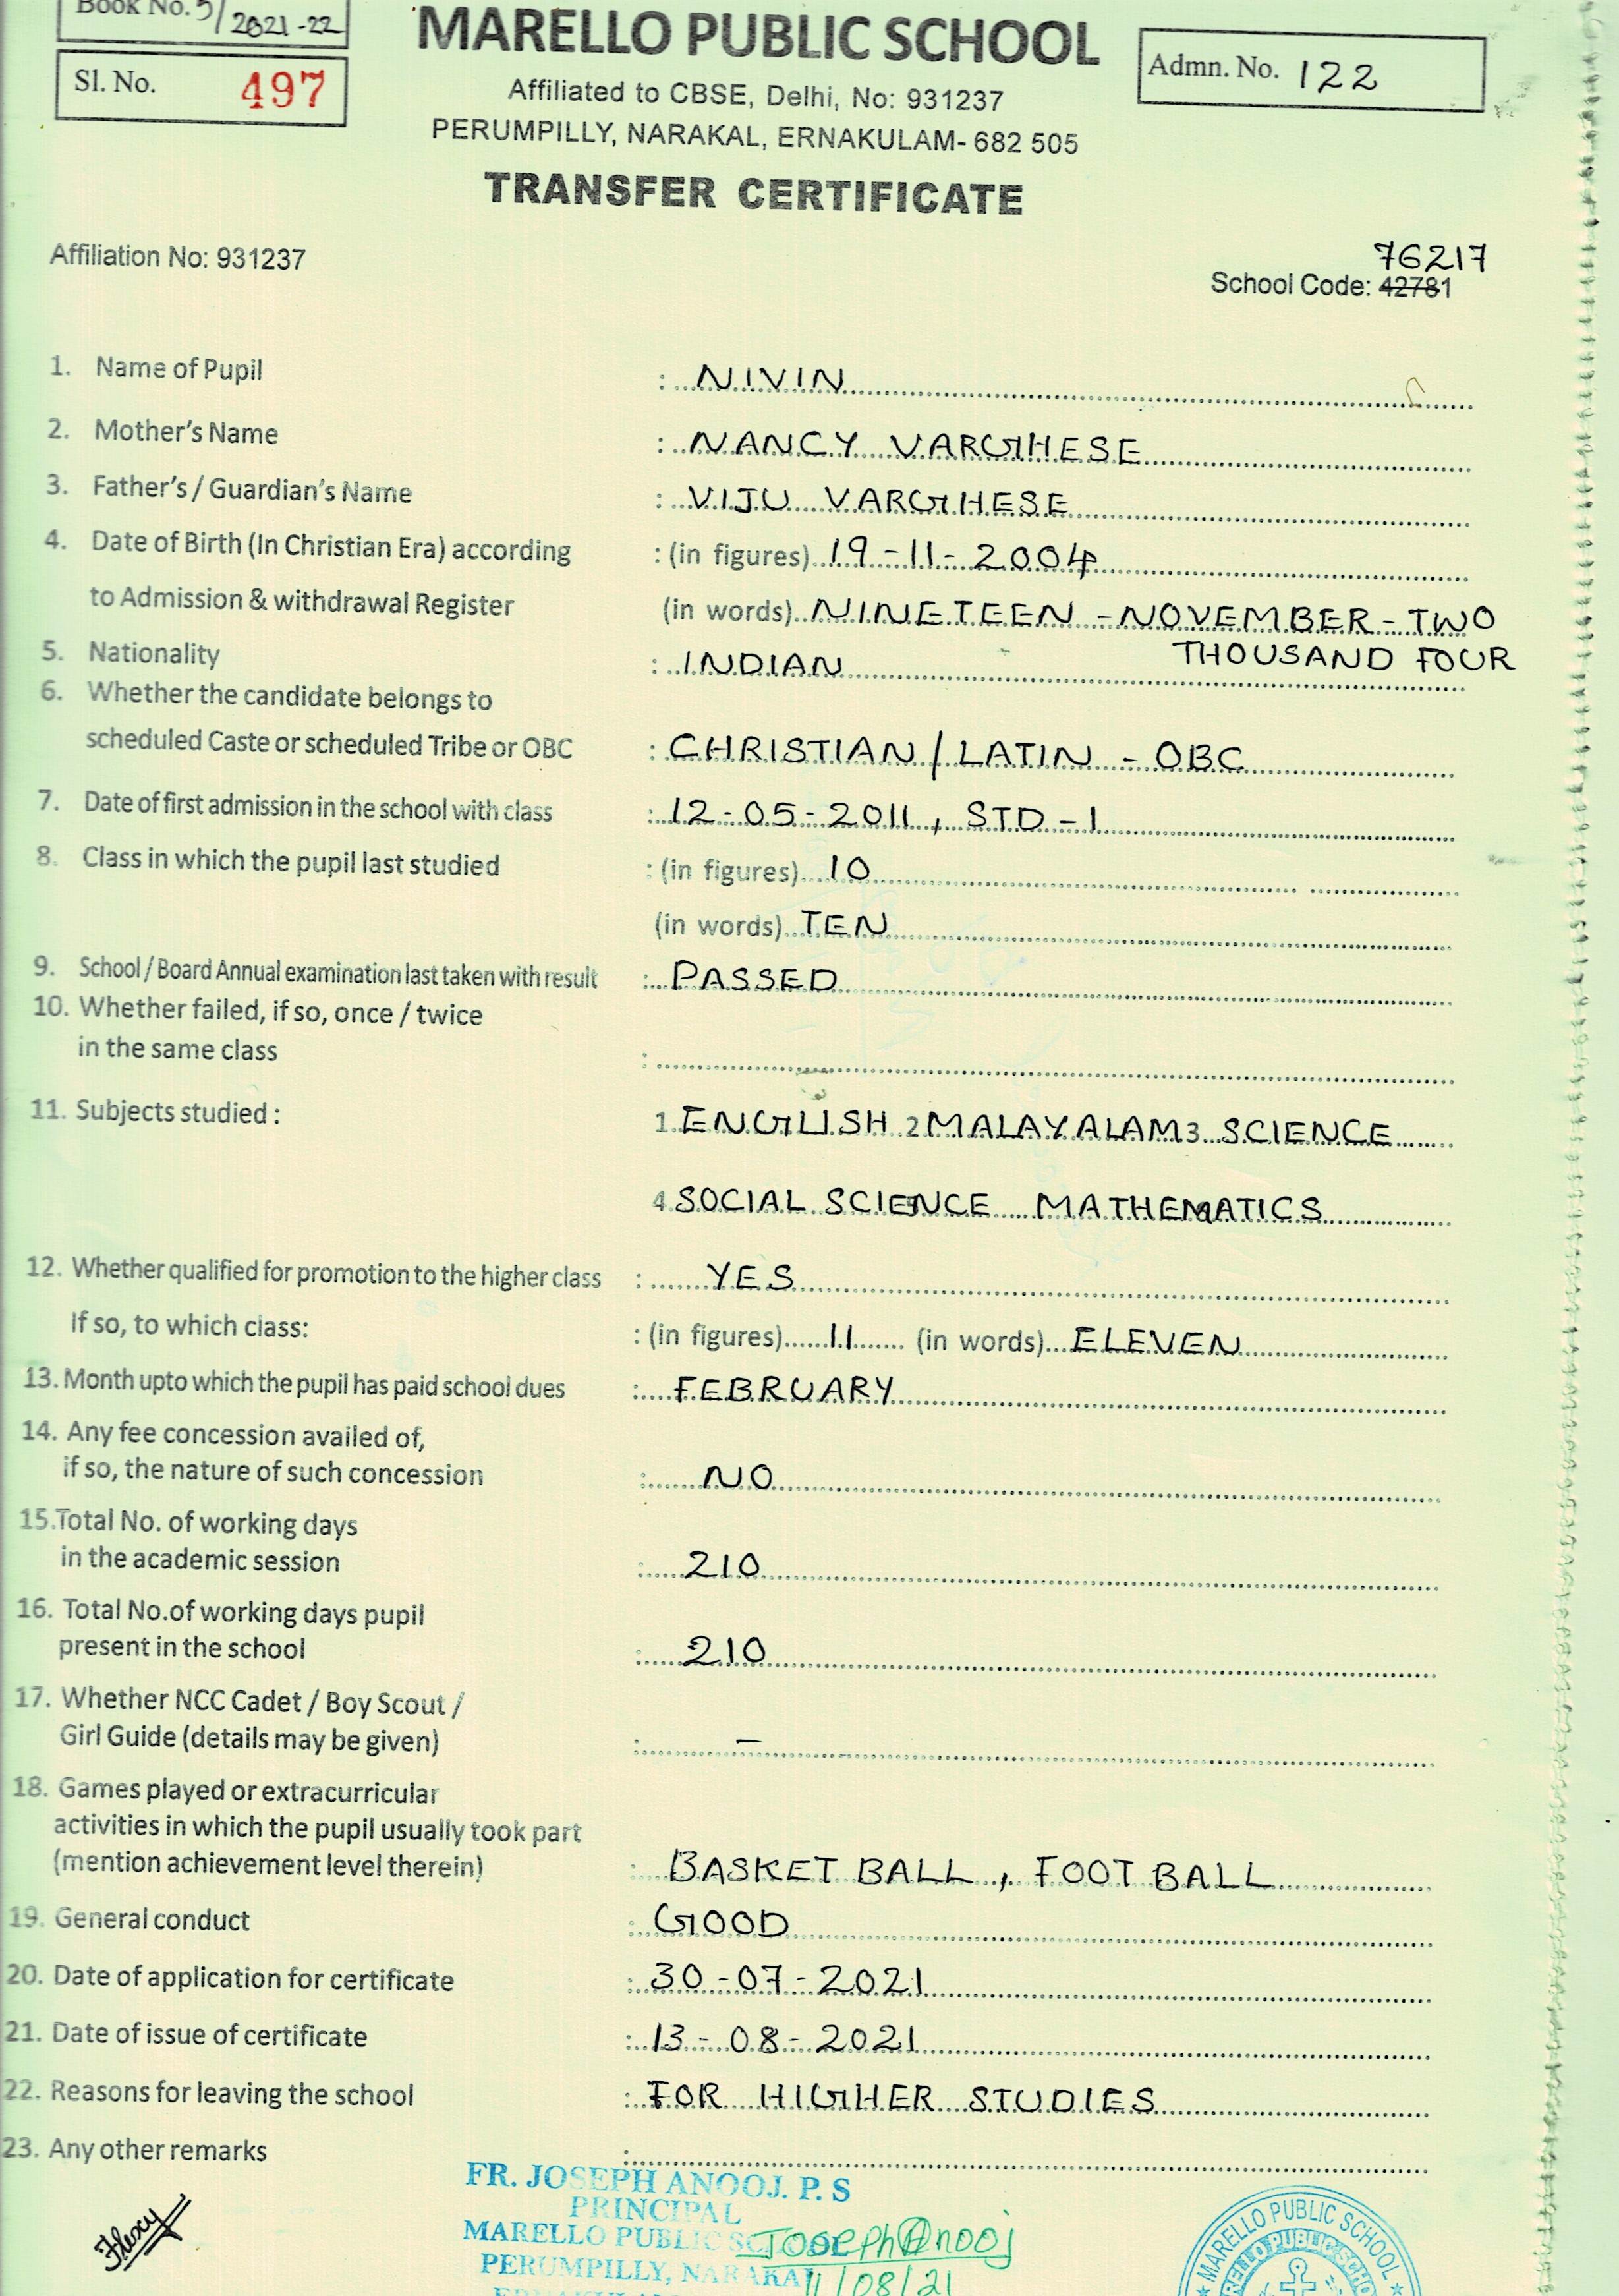 Book No. 5/2021-22
MARELLO PUBLIC SCHOOL
Sl. No. 497
Admn. No. 122
Affiliated to CBSE, Delhi, No: 931237
PERUMPILLY, NARAKAL, ERNAKULAM- 682 505
TRANSFER CERTIFICATE
Affiliation No: 931237
76217
School Code: 42781
1. Name of Pupil : NIVIN
2. Mother's Name : NANCY VARGHESE
3. Father's / Guardian's Name : VIJU VARGHESE
4. Date of Birth (In Christian Era) according : (in figures) 19-11-2004
to Admission & withdrawal Register (in words) NINETEEN - NOVEMBER - TWO
THOUSAND FOUR
5. Nationality : INDIAN
6. Whether the candidate belongs to
scheduled Caste or scheduled Tribe or OBC : CHRISTIAN / LATIN - OBC
7. Date of first admission in the school with class : 12-05-2011, STD - I
8. Class in which the pupil last studied : (in figures) 10
(in words) TEN
9. School / Board Annual examination last taken with result : PASSED
10. Whether failed, if so, once / twice
in the same class :
11. Subjects studied : 1. ENGLISH 2 MALAYALAM 3 SCIENCE
4. SOCIAL SCIENCE MATHEMATICS
12. Whether qualified for promotion to the higher class : YES
If so, to which class: : (in figures) 11 (in words) ELEVEN
13. Month upto which the pupil has paid school dues : FEBRUARY
14. Any fee concession availed of,
if so, the nature of such concession : NO
15. Total No. of working days
in the academic session : 210
16. Total No.of working days pupil
present in the school : 210
17. Whether NCC Cadet / Boy Scout /
Girl Guide (details may be given) : –
18. Games played or extracurricular
activities in which the pupil usually took part
(mention achievement level therein) : BASKET BALL, FOOT BALL
19. General conduct : GOOD
20. Date of application for certificate : 30-07-2021
21. Date of issue of certificate : 13-08-2021
22. Reasons for leaving the school : FOR HIGHER STUDIES
23. Any other remarks :
FR. JOSEPH ANOOJ. P. S
PRINCIPAL
MARELLO PUBLIC SCHOOL
Joseph Anooj
PERUMPILLY, NARAKAL
11/08/21
MARELLO PUBLIC SCHOOL